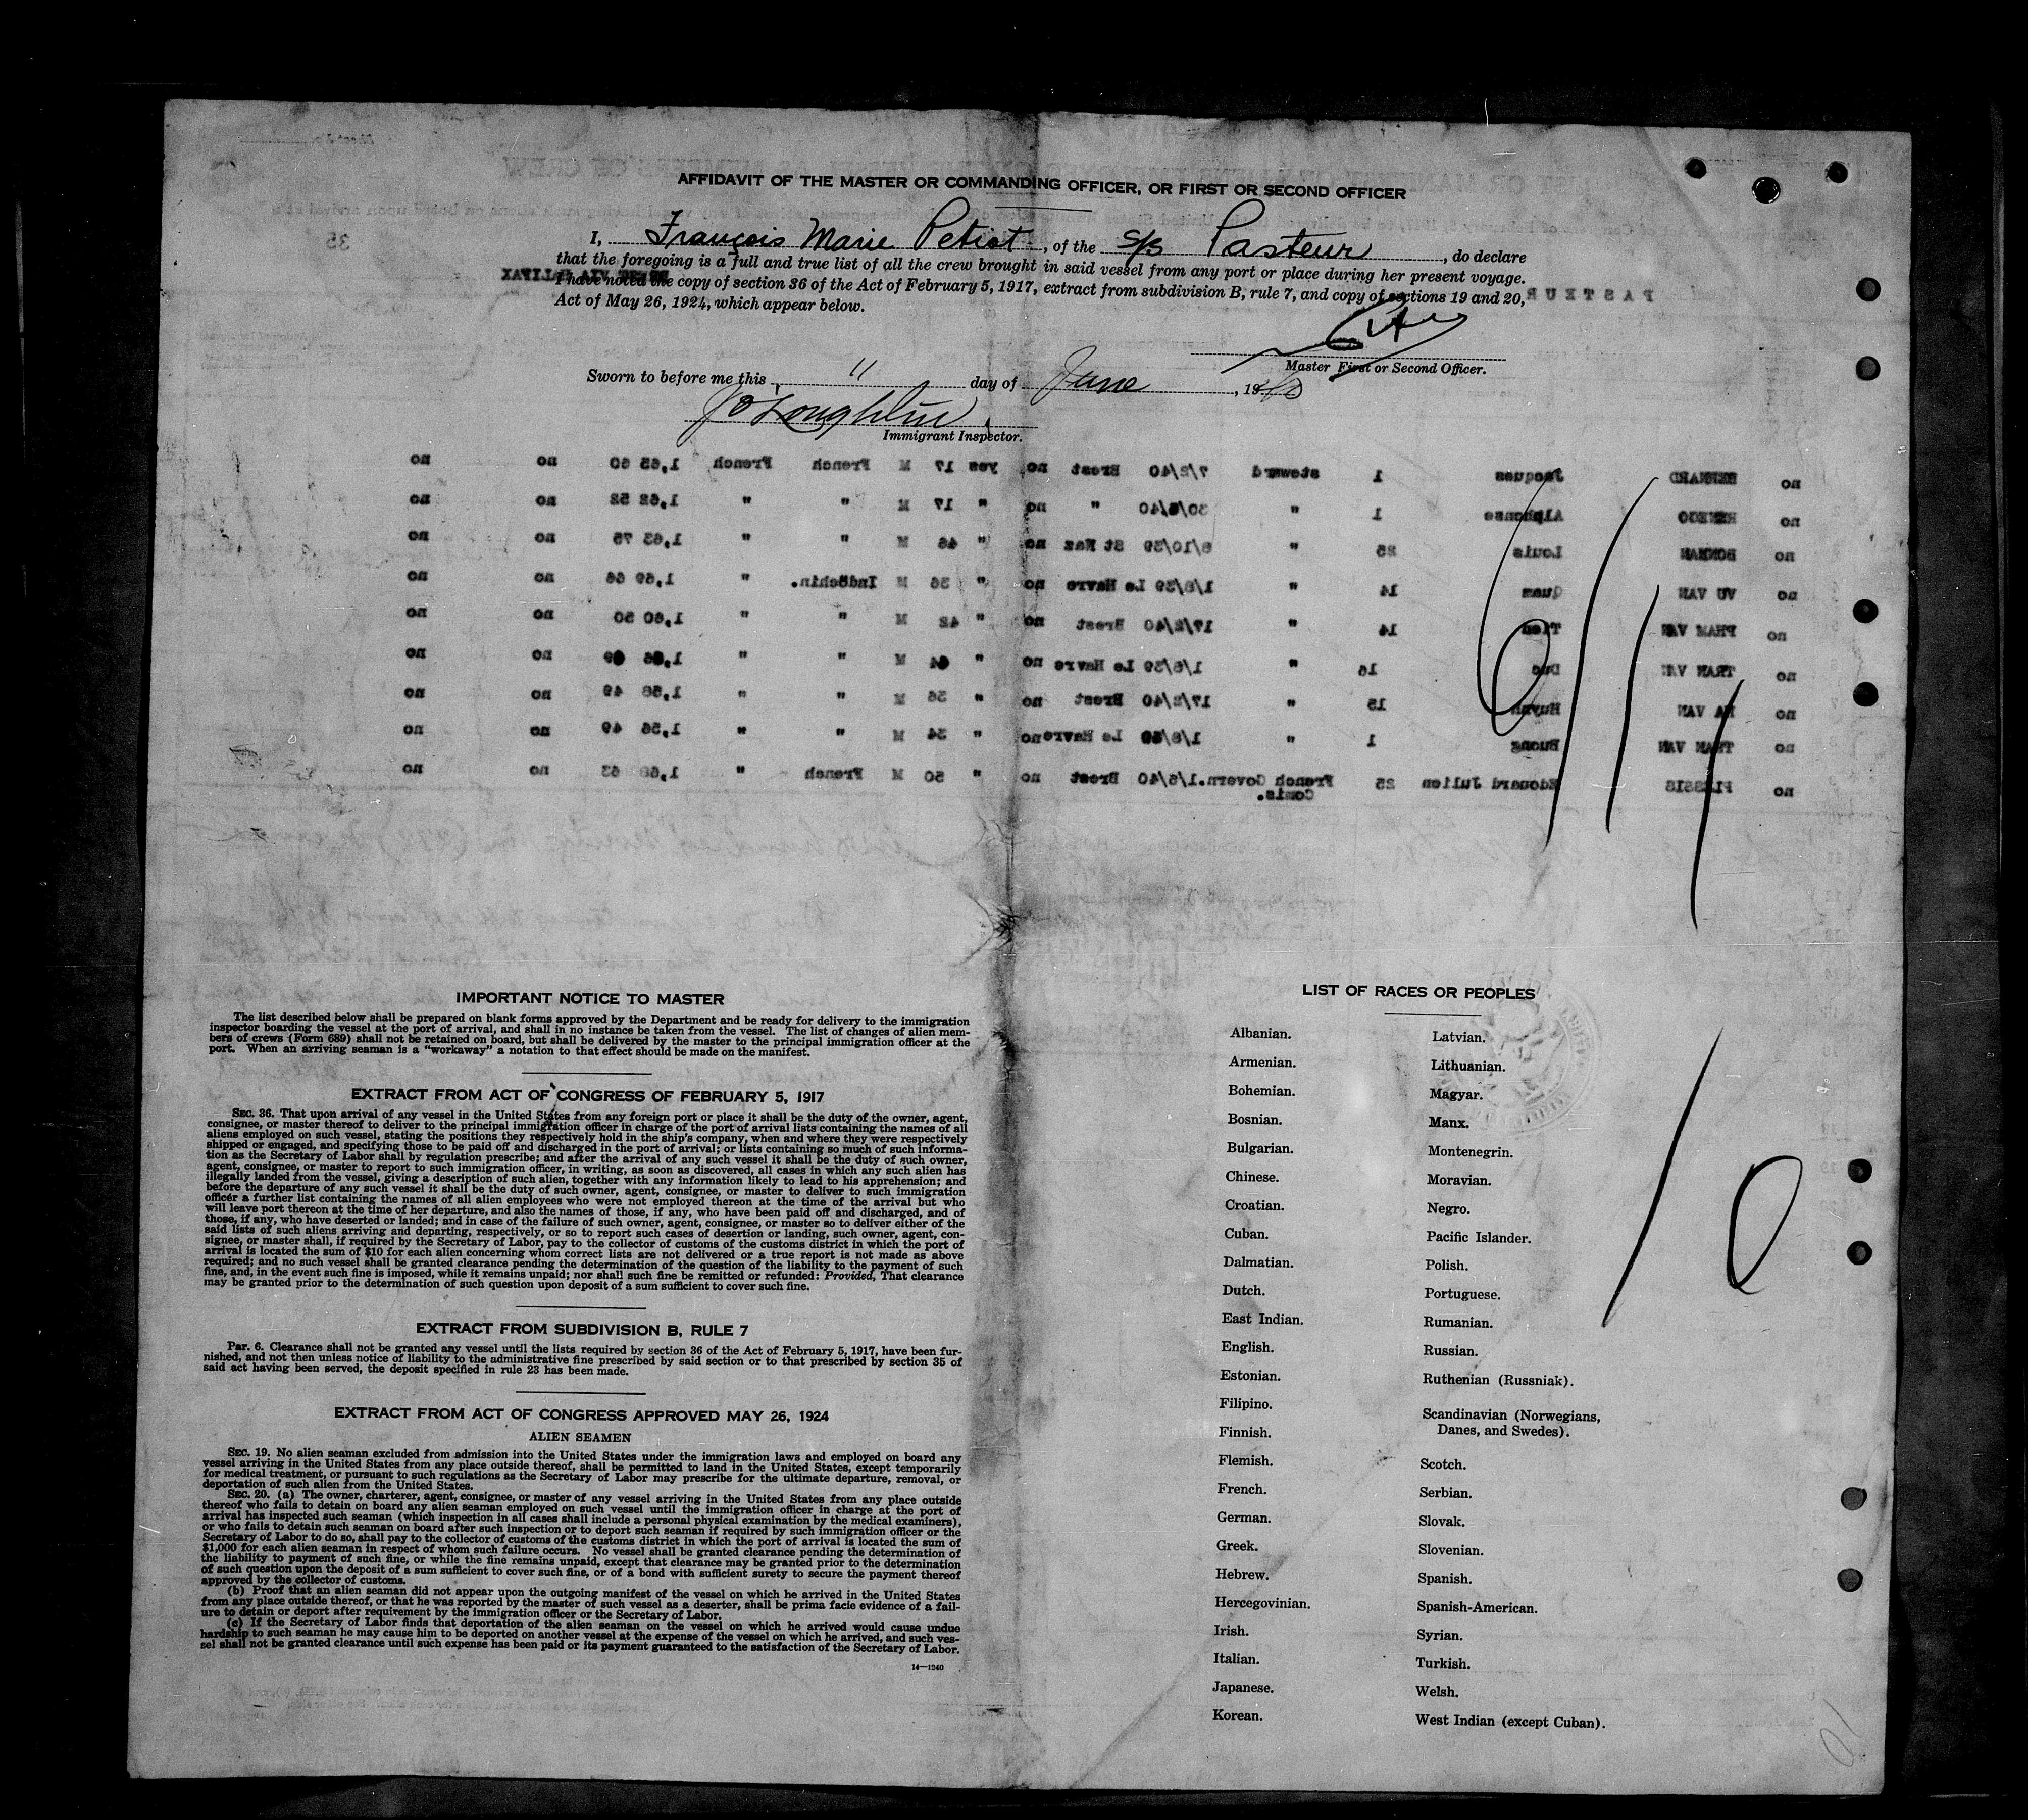 AFFIDAVIT OF THE MASTER OR COMMANDING OFFICER, OR FIRST OR SECOND OFFICER
I, François Marie Petiot, of the S/S Pasteur, do declare
that the foregoing is a full and true list of all the crew brought in said vessel from any port or place during her present voyage.
I have noted the copy of section 36 of the Act of February 5, 1917, extract from subdivision B, rule 7, and copy of sections 19 and 20,
Act of May 26, 1924, which appear below.
35
VIA HALIFAX
PASTEUR
Master First or Second Officer.
Sworn to before me this 11 day of June, 1940
J O'Loughlin
Immigrant Inspector.
no Jacques 1 steward 7/2/40 Brest no yes 17 M French French 1,65 60 no no
no Alphonse 1 " 30/5/40 " no " 17 M " " 1,62 52 no no
no Louis 25 " 6/10/39 St Naz no " 46 M " " 1,63 75 no no
no VU VAN Quam 14 " 1/8/39 Le Havre no " 36 M Indochin. " 1,69 66 no no
no PHAM VAN Tien 14 " 17/2/40 Brest no " 42 M " " 1,60 50 no no
no TRAN VAN Duc 16 " 1/8/39 Le Havre no " M " " no no
no HA VAN Huynh 15 " 17/2/40 Brest no " 36 M " " 1,58 49 no no
no TRAN VAN Buong 1 " 1/8/39 Le Havre no " 34 M " " 1,56 49 no no
no PLESSIS Edouard Julien 25 French Govern. 1/5/40 Brest no " 50 M French " 1,68 63 no no
Comis.
IMPORTANT NOTICE TO MASTER
The list described below shall be prepared on blank forms approved by the Department and be ready for delivery to the immigration
inspector boarding the vessel at the port of arrival, and shall in no instance be taken from the vessel. The list of changes of alien mem-
bers of crews (Form 689) shall not be retained on board, but shall be delivered by the master to the principal immigration officer at the
port. When an arriving seaman is a "workaway" a notation to that effect should be made on the manifest.
EXTRACT FROM ACT OF CONGRESS OF FEBRUARY 5, 1917
SEC. 36. That upon arrival of any vessel in the United States from any foreign port or place it shall be the duty of the owner, agent,
consignee, or master thereof to deliver to the principal immigration officer in charge of the port of arrival lists containing the names of all
aliens employed on such vessel, stating the positions they respectively hold in the ship's company, when and where they were respectively
shipped or engaged, and specifying those to be paid off and discharged in the port of arrival; or lists containing so much of such informa-
tion as the Secretary of Labor shall by regulation prescribe; and after the arrival of any such vessel it shall be the duty of such owner,
agent, consignee, or master to report to such immigration officer, in writing, as soon as discovered, all cases in which any such alien has
illegally landed from the vessel, giving a description of such alien, together with any information likely to lead to his apprehension; and
before the departure of any such vessel it shall be the duty of such owner, agent, consignee, or master to deliver to such immigration
officer a further list containing the names of all alien employees who were not employed thereon at the time of the arrival but who
will leave port thereon at the time of her departure, and also the names of those, if any, who have been paid off and discharged, and of
those, if any, who have deserted or landed; and in case of the failure of such owner, agent, consignee, or master so to deliver either of the
said lists of such aliens arriving and departing, respectively, or so to report such cases of desertion or landing, such owner, agent, con-
signee, or master shall, if required by the Secretary of Labor, pay to the collector of customs of the customs district in which the port of
arrival is located the sum of $10 for each alien concerning whom correct lists are not delivered or a true report is not made as above
required; and no such vessel shall be granted clearance pending the determination of the question of the liability to the payment of such
fine, and, in the event such fine is imposed, while it remains unpaid; nor shall such fine be remitted or refunded: Provided, That clearance
may be granted prior to the determination of such question upon deposit of a sum sufficient to cover such fine.
EXTRACT FROM SUBDIVISION B, RULE 7
PAR. 6. Clearance shall not be granted any vessel until the lists required by section 36 of the Act of February 5, 1917, have been fur-
nished, and not then unless notice of liability to the administrative fine prescribed by said section or to that prescribed by section 35 of
said act having been served, the deposit specified in rule 23 has been made.
EXTRACT FROM ACT OF CONGRESS APPROVED MAY 26, 1924
ALIEN SEAMEN
SEC. 19. No alien seaman excluded from admission into the United States under the immigration laws and employed on board any
vessel arriving in the United States from any place outside thereof, shall be permitted to land in the United States, except temporarily
for medical treatment, or pursuant to such regulations as the Secretary of Labor may prescribe for the ultimate departure, removal, or
deportation of such alien from the United States.
SEC. 20. (a) The owner, charterer, agent, consignee, or master of any vessel arriving in the United States from any place outside
thereof who fails to detain on board any alien seaman employed on such vessel until the immigration officer in charge at the port of
arrival has inspected such seaman (which inspection in all cases shall include a personal physical examination by the medical examiners),
or who fails to detain such seaman on board after such inspection or to deport such seaman if required by such immigration officer or the
Secretary of Labor to do so, shall pay to the collector of customs of the customs district in which the port of arrival is located the sum of
$1,000 for each alien seaman in respect of whom such failure occurs. No vessel shall be granted clearance pending the determination of
the liability to payment of such fine, or while the fine remains unpaid, except that clearance may be granted prior to the determination
of such question upon the deposit of a sum sufficient to cover such fine, or of a bond with sufficient surety to secure the payment thereof
approved by the collector of customs.
(b) Proof that an alien seaman did not appear upon the outgoing manifest of the vessel on which he arrived in the United States
from any place outside thereof, or that he was reported by the master of such vessel as a deserter, shall be prima facie evidence of a fail-
ure to detain or deport after requirement by the immigration officer or the Secretary of Labor.
(c) If the Secretary of Labor finds that deportation of the alien seaman on the vessel on which he arrived would cause undue
hardship to such seaman he may cause him to be deported on another vessel at the expense of the vessel on which he arrived, and such ves-
sel shall not be granted clearance until such expense has been paid or its payment guaranteed to the satisfaction of the Secretary of Labor.
14—1240
LIST OF RACES OR PEOPLES
Albanian.
Armenian.
Bohemian.
Bosnian.
Bulgarian.
Chinese.
Croatian.
Cuban.
Dalmatian.
Dutch.
East Indian.
English.
Estonian.
Filipino.
Finnish.
Flemish.
French.
German.
Greek.
Hebrew.
Hercegovinian.
Irish.
Italian.
Japanese.
Korean.
Latvian.
Lithuanian.
Magyar.
Manx.
Montenegrin.
Moravian.
Negro.
Pacific Islander.
Polish.
Portuguese.
Rumanian.
Russian.
Ruthenian (Russniak).
Scandinavian (Norwegians,
Danes, and Swedes).
Scotch.
Serbian.
Slovak.
Slovenian.
Spanish.
Spanish-American.
Syrian.
Turkish.
Welsh.
West Indian (except Cuban).
10